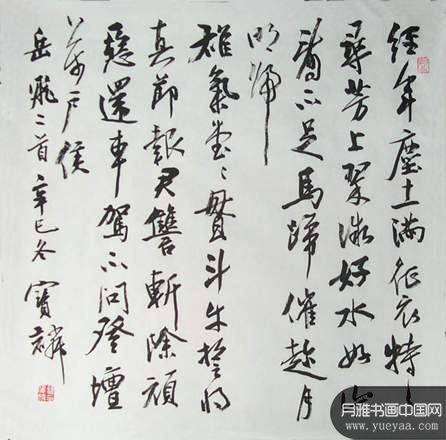 經年塵土滿征衣特々
尋芳上翠微好水好山
看不足馬蹄催趁月
明歸
雄氣堂々貫斗牛誓將
真節報君讐斬除頑
惡還車駕不問登壇
萬戶侯
岳飛二首 辛巳冬 寶麟
月雅书画中国网
www.yueyaa.com